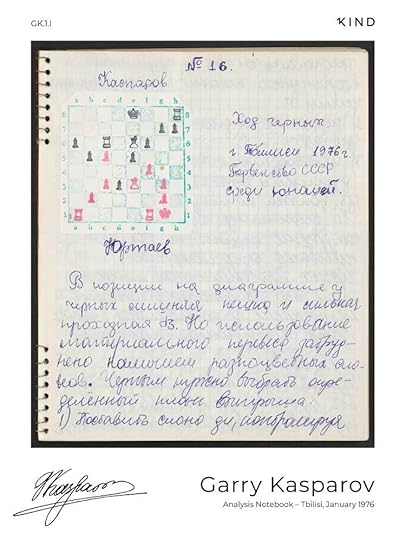 GK.1.I
KIND
№ 16.
Каспаров
a b c d e f g h
8
7
6
5
4
3
2
1
a b c d e f g h
Ход черных
г Тбилиси 1976г.
Первенство СССР
среди юношей.
Юртаев
В позиции на диаграмме у
черных лишняя пешка и сильная
проходная d3. Но использование
материального перевеса затруд-
нено наличием разноцветных сло-
нов. Черным нужно выбрать опре-
делённый план выигрыша:
1) Поставить слона d4, контролируя
Garry Kasparov
Analysis Notebook – Tbilisi, January 1976